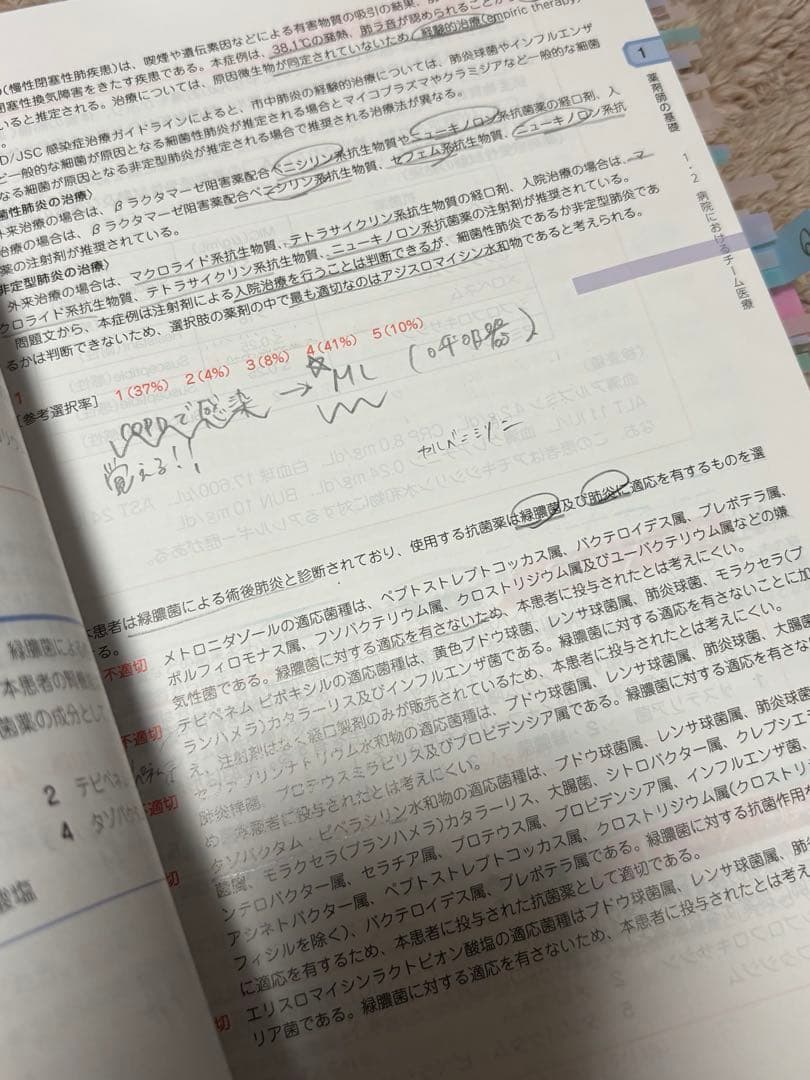 (慢性閉塞性肺疾患)は、喫煙や遺伝素因などによる有害物質の吸引の結果、
閉塞性換気障害をきたす疾患である。本症例は、38.1℃の発熱、肺ラ音が認められることか
いると推定される。治療については、原因微生物が同定されていないため、経験的治療(empiric therapy)
D/JSC 感染症治療ガイドラインによると、市中肺炎の経験的治療については、肺炎球菌やインフルエンザ
ど一般的な細菌が原因となる細菌性肺炎が推定される場合とマイコプラズマやクラミジアなど一般的な細菌
なる細菌が原因となる非定型肺炎が推定される場合で推奨される治療法が異なる。
菌性肺炎の治療〉
外来治療の場合は、βラクタマーゼ阻害薬配合ペニシリン系抗生物質やニューキノロン系抗菌薬の経口剤、入
治療の場合は、βラクタマーゼ阻害薬配合ペニシリン系抗生物質、セフェム系抗生物質、ニューキノロン系抗
薬の注射剤が推奨されている。
非定型肺炎の治療〉
外来治療の場合は、マクロライド系抗生物質、テトラサイクリン系抗生物質の経口剤、入院治療の場合は、マ
クロライド系抗生物質、テトラサイクリン系抗生物質、ニューキノロン系抗菌薬の注射剤が推奨されている。
問題文から、本症例は注射剤による入院治療を行うことは判断できるが、細菌性肺炎であるか非定型肺炎であ
るかは判断できないため、選択肢の薬剤の中で最も適切なのはアジスロマイシン水和物であると考えられる。
1
[参考選択率] 1(37%) 2(4%) 3(8%) 4(41%) 5(10%)
COPDで感染 → ☆ML (呼吸器)
覚える!!
本患者は緑膿菌による術後肺炎と診断されており、使用する抗菌薬は緑膿菌及び肺炎に適応を有するものを選
る。
不適切 メトロニダゾールの適応菌種は、ペプトストレプトコッカス属、バクテロイデス属、プレボテラ属、
ポルフィロモナス属、フソバクテリウム属、クロストリジウム属及びユーバクテリウム属などの嫌
気性菌である。緑膿菌に対する適応を有さないため、本患者に投与されたとは考えにくい。
不適切 テビペネム ピボキシルの適応菌種は、黄色ブドウ球菌、レンサ球菌属、肺炎球菌、モラクセラ(ブ
ランハメラ)カタラーリス及びインフルエンザ菌である。緑膿菌に対する適応を有さないことに加
え、注射剤はなく経口製剤のみが販売されているため、本患者に投与されたとは考えにくい。
不適切 セファゾリンナトリウム水和物の適応菌種は、ブドウ球菌属、レンサ球菌属、肺炎球菌、大腸菌
肺炎桿菌、プロテウスミラビリス及びプロビデンシア属である。緑膿菌に対する適応を有さな
め、本患者に投与されたとは考えにくい。
切 タゾバクタム・ピペラシリン水和物の適応菌種は、ブドウ球菌属、レンサ球菌属、肺炎球菌
菌属、モラクセラ(ブランハメラ)カタラーリス、大腸菌、シトロバクター属、クレブシエ
ンテロバクター属、セラチア属、プロテウス属、プロビデンシア属、インフルエンザ菌、
アシネトバクター属、ペプトストレプトコッカス属、クロストリジウム属(クロストリ
フィシルを除く)、バクテロイデス属、プレボテラ属である。緑膿菌に対する抗菌作用
に適応を有するため、本患者に投与された抗菌薬として適切である。
切 エリスロマイシンラクトビオン酸塩の適応菌種はブドウ球菌属、レンサ球菌属、肺
リア菌である。緑膿菌に対する適応を有さないため、本患者に投与されたとは考え
緑膿菌によ
本患者の腎機能
菌薬の成分として
2 テビペネ
4 タゾバ
酸塩
1
薬剤師の基礎
1・2 病院におけるチーム医療